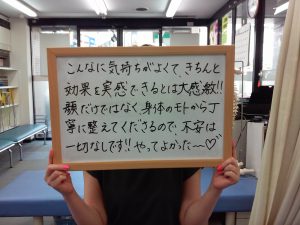 こんなに気持ちがよくて、きちんと
効果も実感できるとは大感激!!
顔だけではなく、身体のモトから丁
寧に整えてくださるので、不安は
一切なしです!!やってよかった〜♡